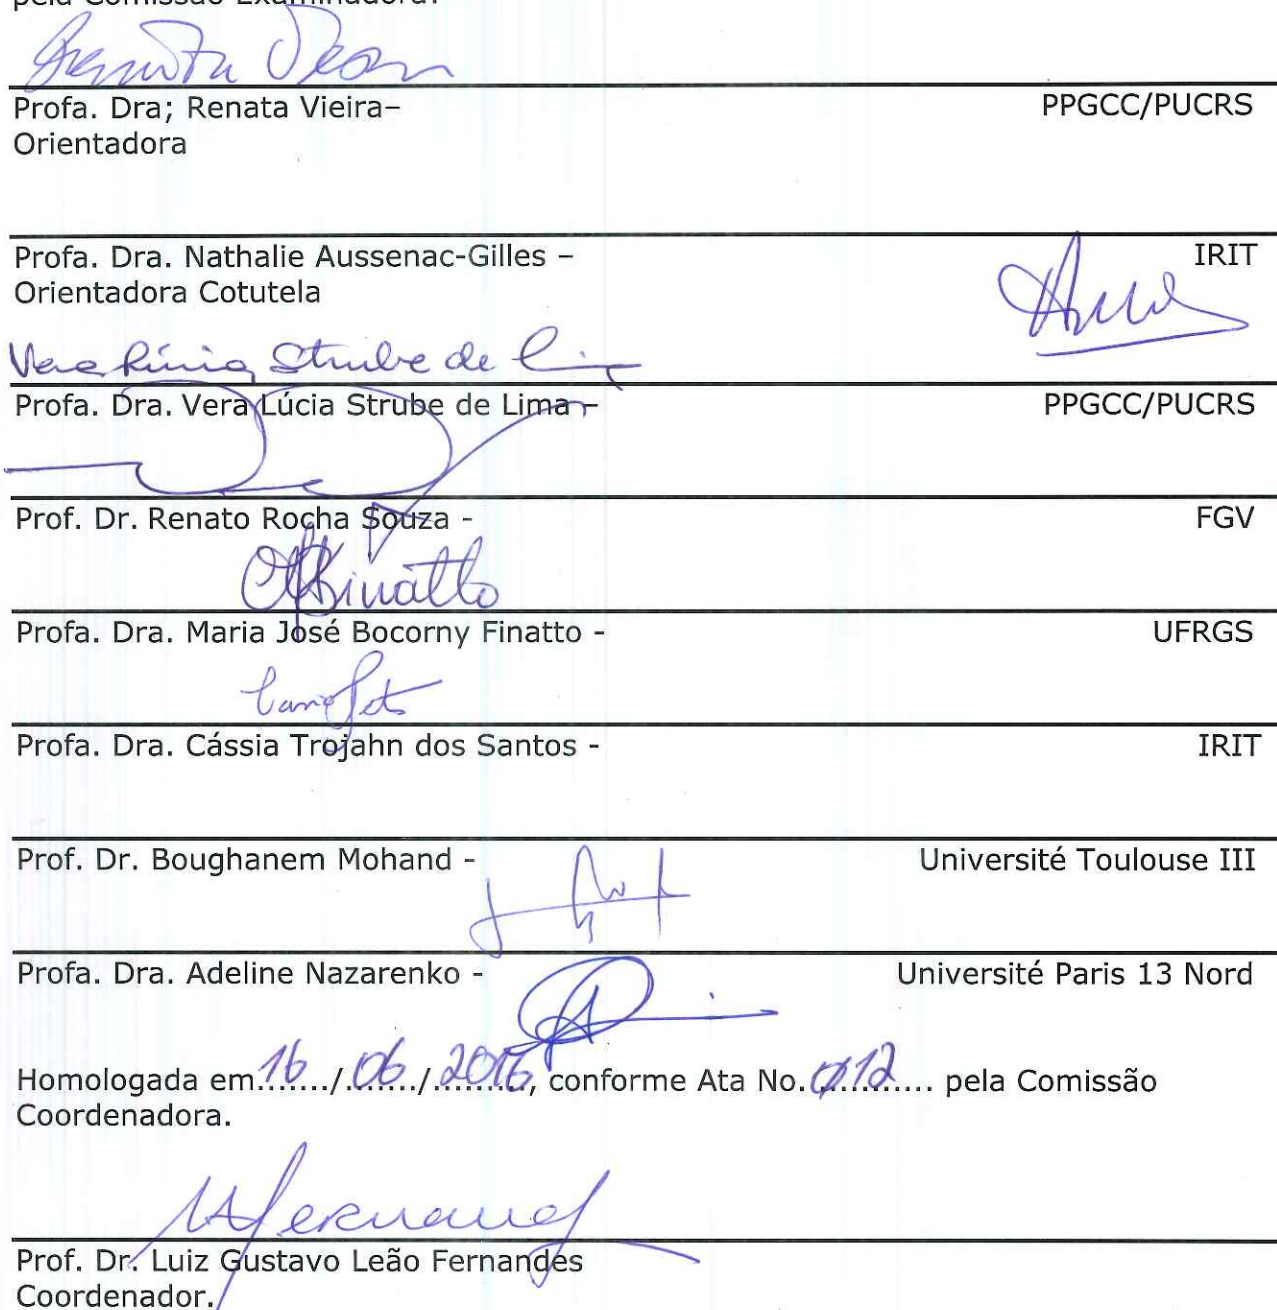 pela Comissão Examinadora:
Profa. Dra; Renata Vieira– PPGCC/PUCRS
Orientadora
Profa. Dra. Nathalie Aussenac-Gilles – IRIT
Orientadora Cotutela
Vera Lúcia Strube de Lima
Profa. Dra. Vera Lúcia Strube de Lima – PPGCC/PUCRS
Prof. Dr. Renato Rocha Souza - FGV
Profa. Dra. Maria José Bocorny Finatto - UFRGS
Profa. Dra. Cássia Trojahn dos Santos - IRIT
Prof. Dr. Boughanem Mohand - Université Toulouse III
Profa. Dra. Adeline Nazarenko - Université Paris 13 Nord
Homologada em 16/06/2016, conforme Ata No. 012 pela Comissão
Coordenadora.
Prof. Dr. Luiz Gustavo Leão Fernandes
Coordenador.